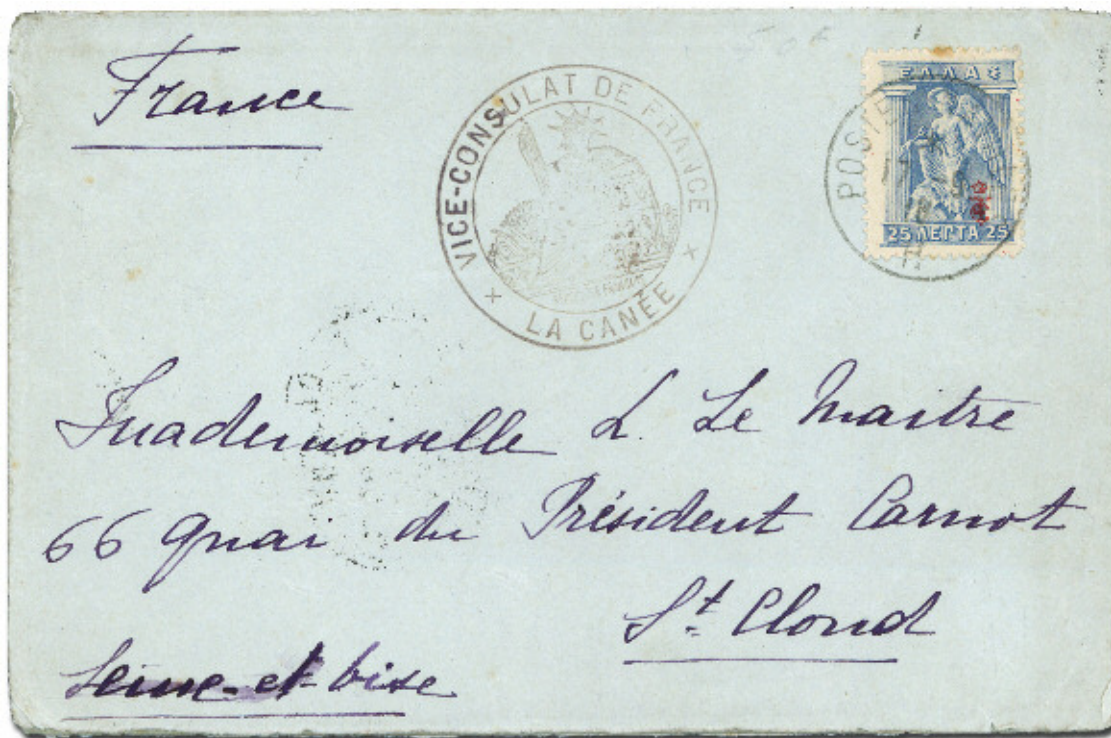 France
VICE-CONSULAT DE FRANCE
LA CANÉE
ΕΛΛΑΣ
25 ΛΕΠΤΑ 25
POSTE
Mademoiselle L Le Maitre
66 quai du Président Carnot
St Cloud
Seine-et-Oise